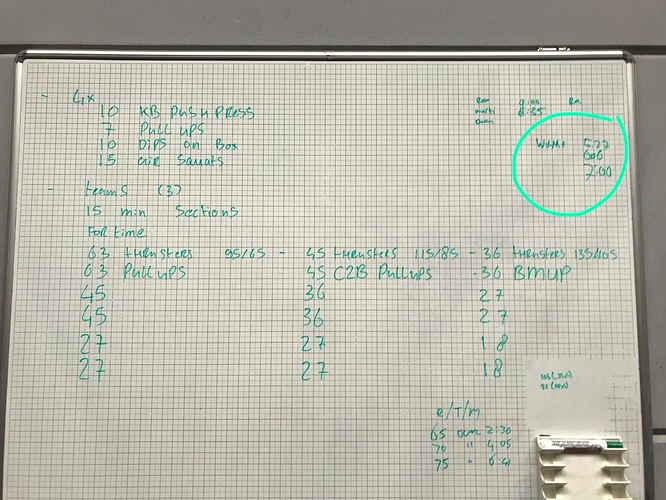 - 4x
10 KB PUSH PRESS
7 PULL UPS
10 DIPS on Box
15 air Squats
- teams (3)
15 min Sections
FOR time
63 tHRUSTERS 95/65 - 45 tHRUSTERS 115/85 - 36 tHRUSTERS 135/105
63 PULLUPS 45 C2B PULLUPS - 36 BMUP
45 36 27
45 36 27
27 27 18
27 27 18
9:00
8:35
5:27
6:06
7:00
R/T/M
65 2:30
70 " 4:05
75 " 6:41